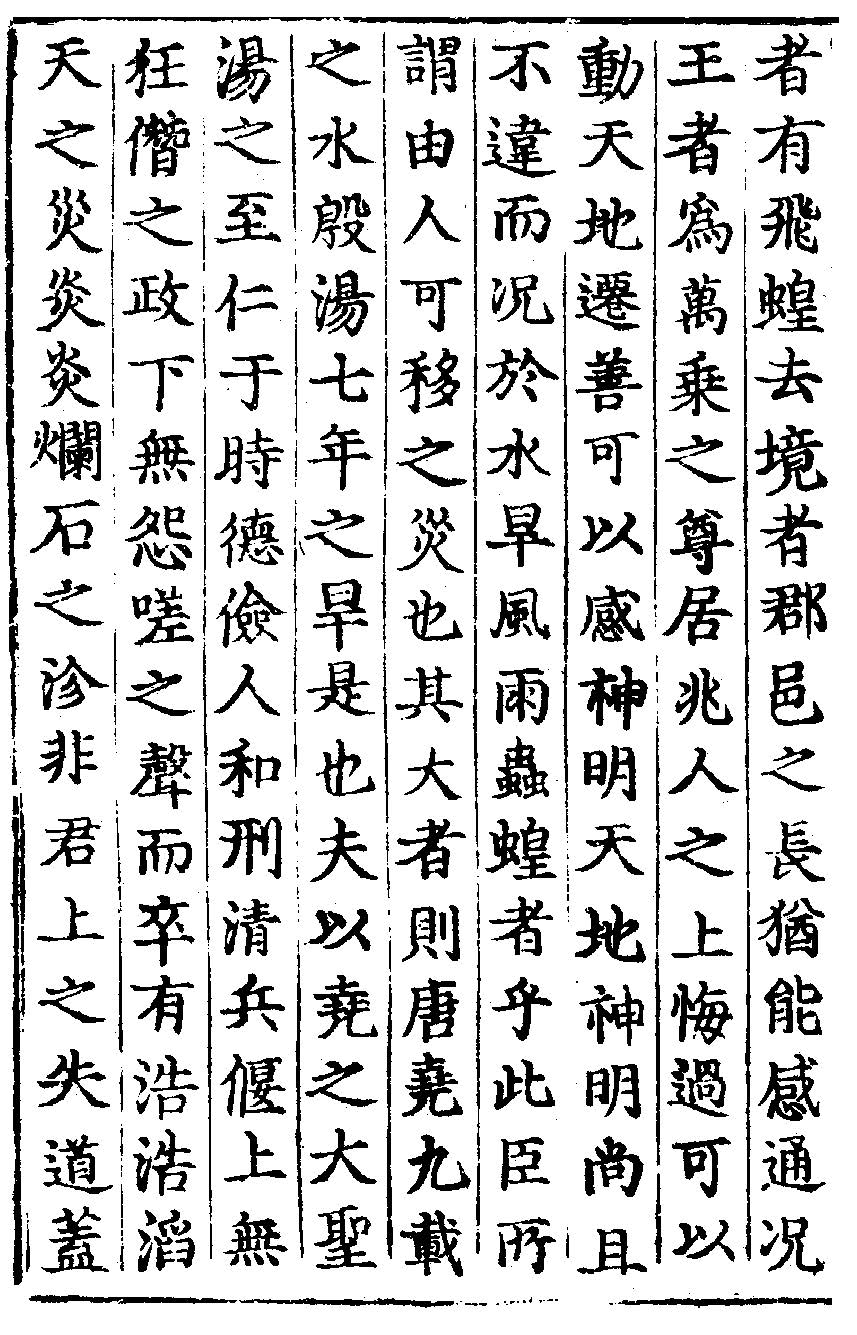 者有飛蝗去境者郡邑之長猶能感通况
王者爲萬乗之尊居兆人之上悔過可以
動天地遷善可以感神明天地神明尚且
不違而况於水旱風雨蟲蝗者乎此臣所
謂由人可移之災也其大者則唐堯九載
之水殷湯七年之旱是也夫以堯之大聖
湯之至仁于時德儉人和刑清兵偃上無
狂僭之政下無怨嗟之聲而卒有浩浩滔
天之災炎炎爛石之沴非君上之失道蓋